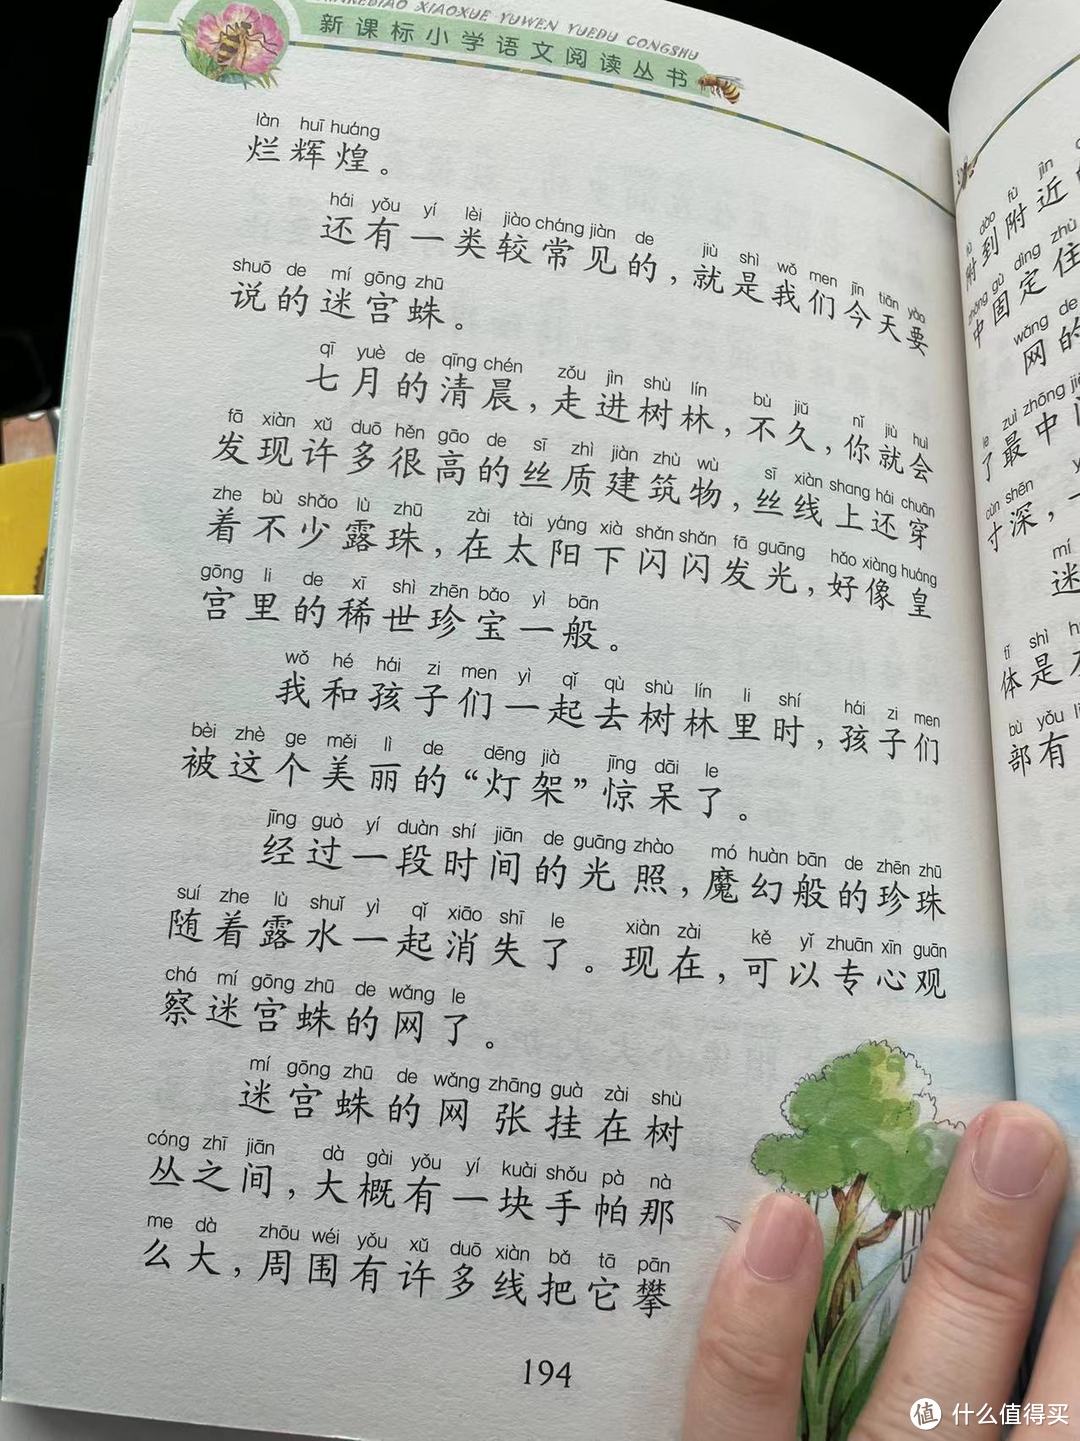 XIAOXUE YUWEN YUEDU CONGSHU
新课标小学语文阅读丛书
làn huī huáng
烂辉煌。
hái yǒu yí lèi jiào cháng jiàn de jiù shì wǒ men jīn tiān yào
还有一类较常见的，就是我们今天要
shuō de mí gōng zhū
说的迷宫蛛。
qī yuè de qīng chén zǒu jìn shù lín bù jiǔ nǐ jiù huì
七月的清晨，走进树林，不久，你就会
fā xiàn xǔ duō hěn gāo de sī zhì jiàn zhù wù sī xiàn shang hái chuān
发现许多很高的丝质建筑物，丝线上还穿
zhe bù shǎo lù zhū zài tài yáng xià shǎn shǎn fā guāng hǎo xiàng huáng
着不少露珠，在太阳下闪闪发光，好像皇
gōng li de xī shì zhēn bǎo yì bān
宫里的稀世珍宝一般。
wǒ hé hái zi men yì qǐ qù shù lín li shí hái zi men
我和孩子们一起去树林里时，孩子们
bèi zhè ge měi lì de dēng jià jīng dāi le
被这个美丽的“灯架”惊呆了。
jīng guò yí duàn shí jiān de guāng zhào mó huàn bān de zhēn zhū
经过一段时间的光照，魔幻般的珍珠
suí zhe lù shuǐ yì qǐ xiāo shī le xiàn zài kě yǐ zhuān xīn guān
随着露水一起消失了。现在，可以专心观
chá mí gōng zhū de wǎng le
察迷宫蛛的网了。
mí gōng zhū de wǎng zhāng guà zài shù
迷宫蛛的网张挂在树
cóng zhī jiān dà gài yǒu yí kuài shǒu pà nà
丛之间，大概有一块手帕那
me dà zhōu wéi yǒu xǔ duō xiàn bǎ tā pān
么大，周围有许多线把它攀
194
dào fù jìn
附到附近
zhōng gù dìng zhù
中固定住
wǎng de
网的
le zuì zhōng
了最中
cùn shēn
寸深，
mí
迷
tǐ shì
体是
bù yǒu
部有
值 什么值得买